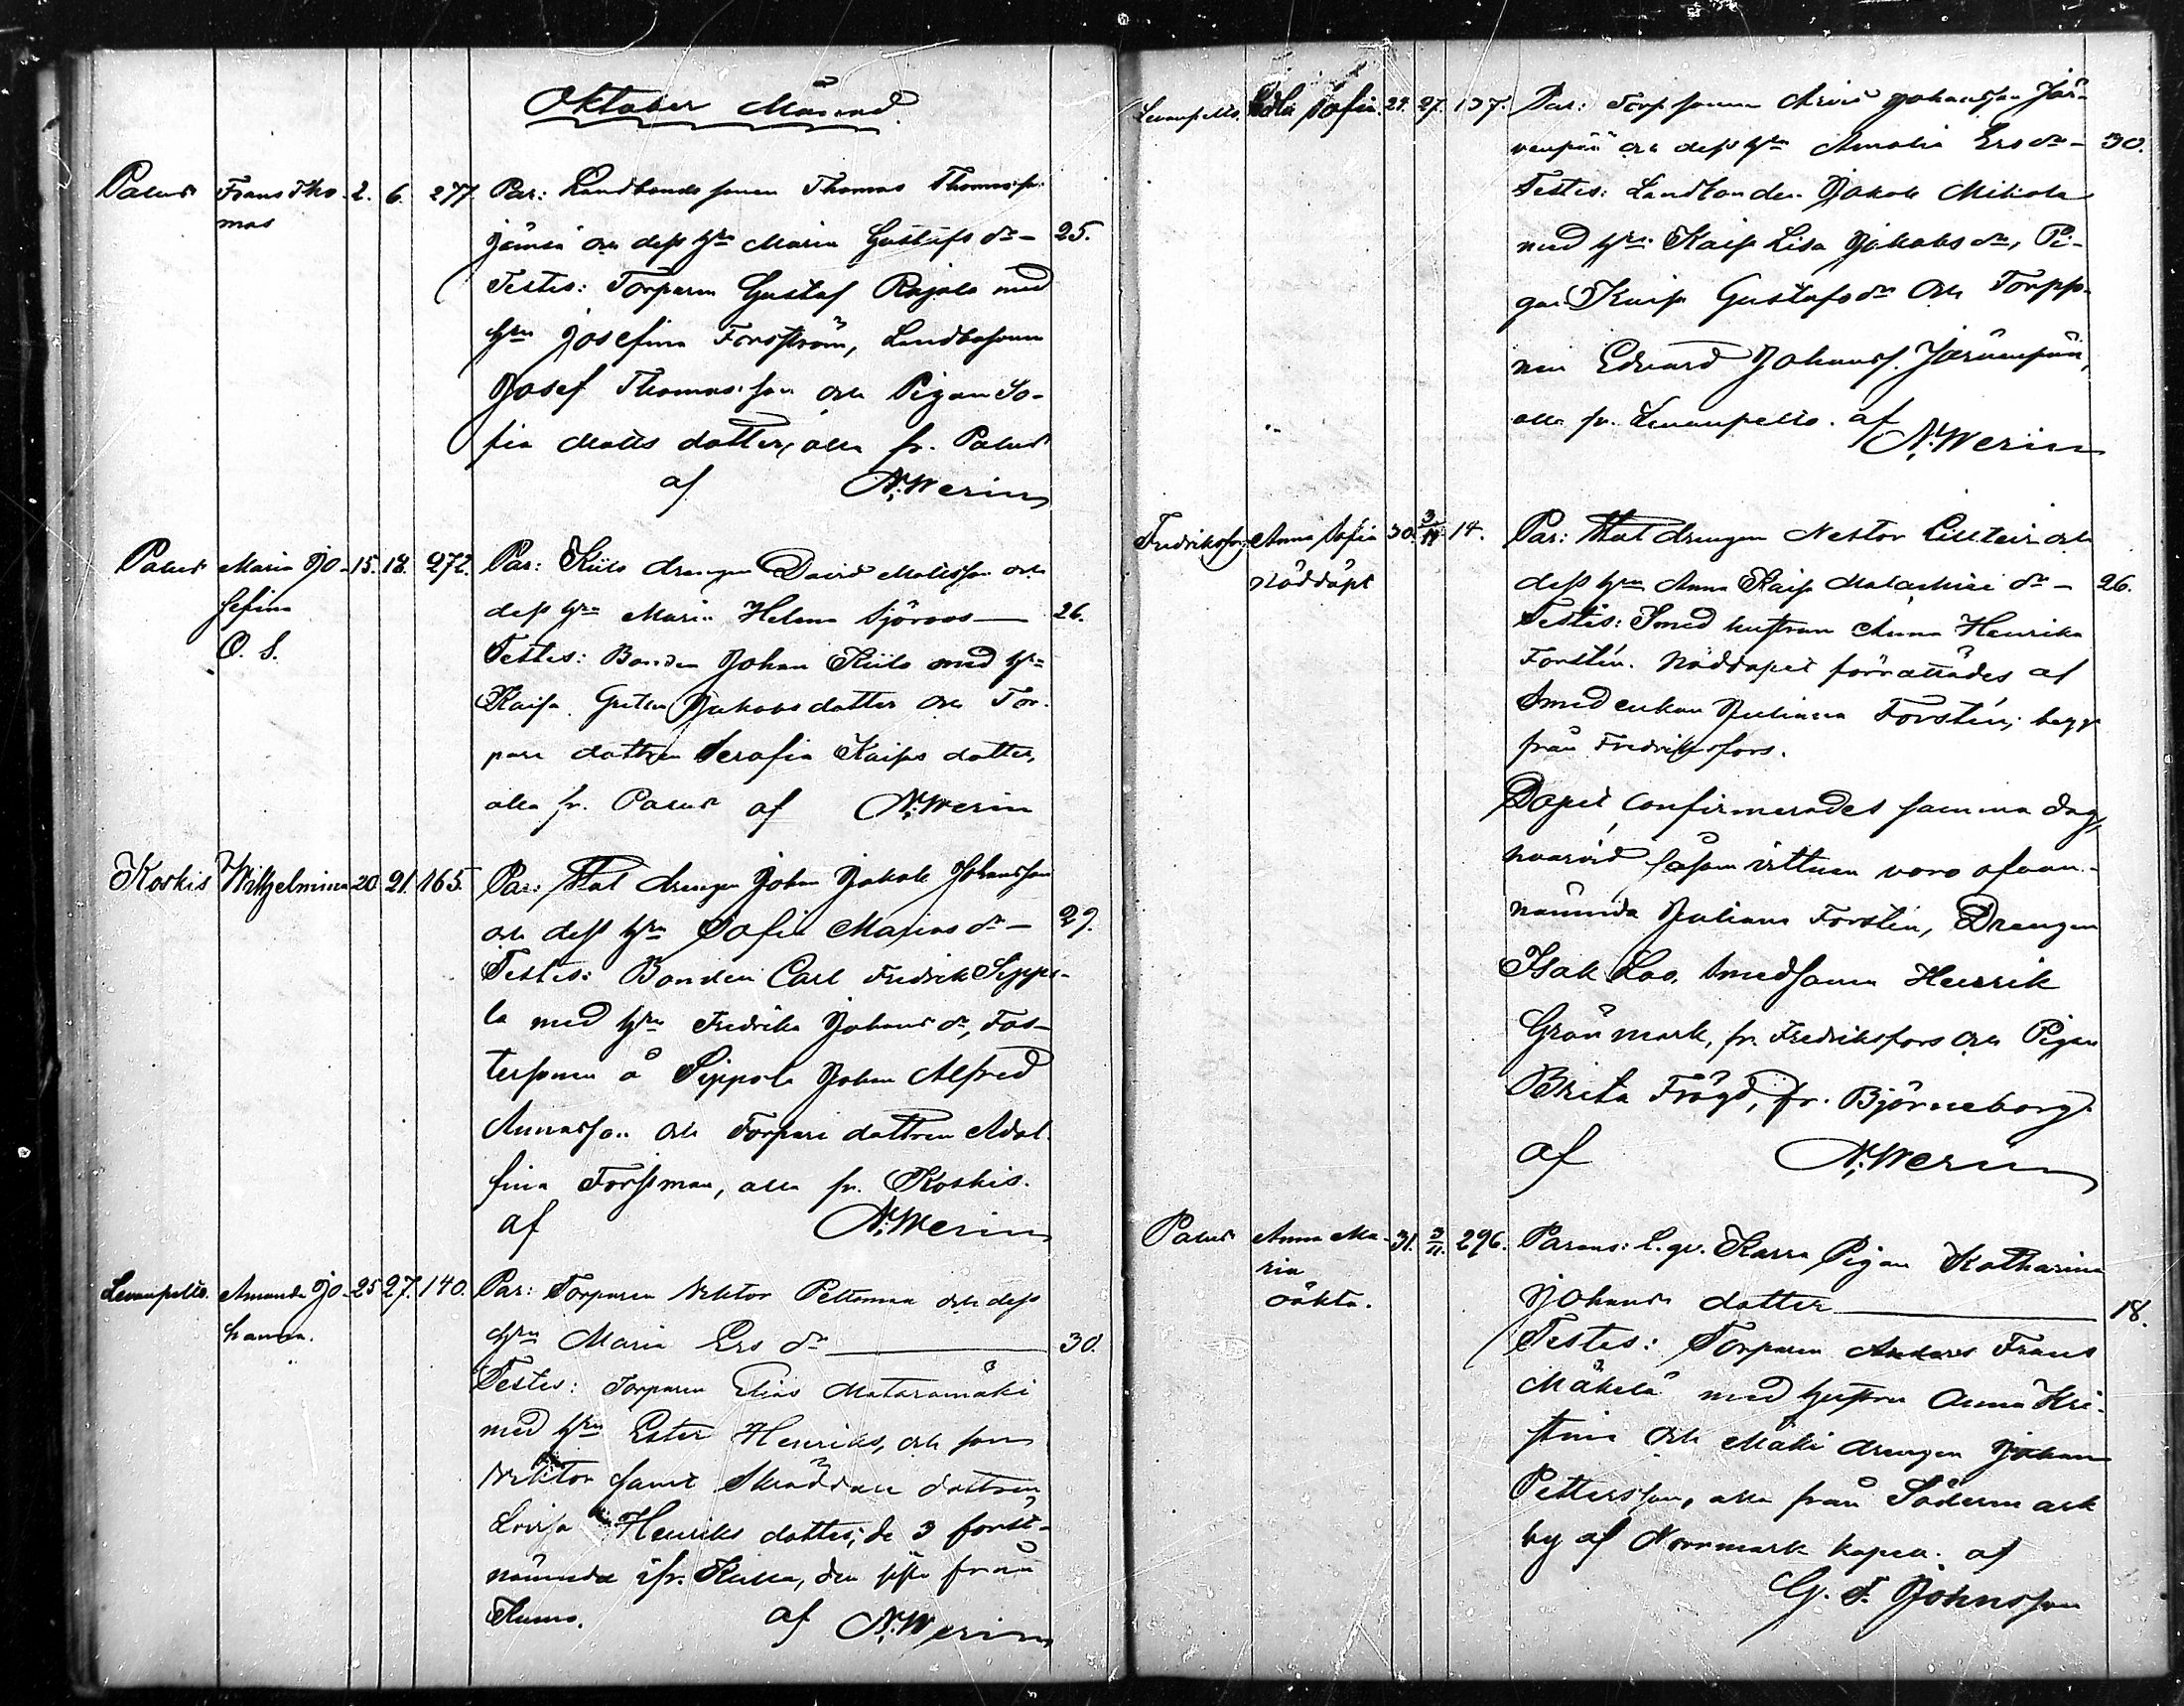 Oktober Månad.
Palus Frans Tho- 2. 6. 277. Par: Landbonds sonen Thomas Thomasson
mas
Jämsä och dess hru Maria Gustafs dr — 25.
Testes: Torparen Gustaf Rajala med
hru Josefina Forsström, Landbosonen
Josef Thomasson och Pigan So-
fia Matts dotter, alla fr. Palus
af N. Werin
Palus Maria Jo- 15. 18. 272. Par: Kiilo drengen David Matsson och
sefina
O. S.
dess hru Maria Helena Sjöroos — 26.
Testes: Bonden Johan Kiilo med hru
Kaisa Greta Jakobsdotter och Tor-
pare dottren Serafia Kaisas dotter,
alla fr. Palus af N. Werin
Koskis Wilhelmina 20. 21. 165. Par: Stat drengen Johan Jakob Johansson
och dess hru Sofia Marias dr — 29.
Testes: Bonden Carl Fredrik Seppe-
la med hru Fredrika Johans dr, Fos-
tersonen å Seppola Johan Alfred
Annasson och Torpare dottren Adol-
fina Forssman, alla fr. Koskis.
af N. Werin
Levanpelto. Amanda Jo- 25 27. 140. Par: Torparen Nektor Peltomaa och dess
hanna.
hru Maria Ers dr — 30.
Testes: Torparen Elias Mataramäki
med hru Ester Henriks, och son
Nektor samt Skräddare dottren
Lovisa Henriks dotter; de 3 först-
nämnda ifr. Kulla, den sista från
Kumo. af N. Werin
Levanpelto. Edla Sofia. 24. 27. 137. Par: Torp sonen Arvid Johansson Jär-
venpää och dess hru Amalia Ers dr — 30.
Testes: Landbonden Jakob Mikola
med hru Kaisa Lisa Jakobs dr, Pi-
gan Kaisa Gustafs dr och Torpso-
nen Edvard Johanss. Järvenpää,
alla fr. Levanpelto. af
N. Werin
Fredriksfors Anna Sofia 30. 3/11 14. Par: Stat drengen Nestor och
Nöddöpt
dess hru Anna Kaisa dr — 26.
Testes: Smed hustrun Anna Henrika
Forstén. Nöddopet förrättades af
Smed enkan Juliana Forstén; begge
från Fredriksfors.
Dopet confirmerades samma dag,
hvarvid såsom vittnen voro ofvan-
nämnda Juliana Forstén, Drengen
Isak Loo, Smedsonen Henrik
Grönmark, fr. Fredriksfors och Pigan
Brita Frögd, fr. Björneborg.
af N. Werin
Palus Anna Ma- 31. 3/11. 296. Parens: L. gv. Karra Pigan Katharina
ria
oäkta.
Johans dotter — 18.
Testes: Torparen Anders Frans
Mäkelä med hustru Anna Kri-
stina och Mäki drengen Johan
Pettersson, alla från Södermark
by af Norrmark kapell. af
G. F. Johnsson